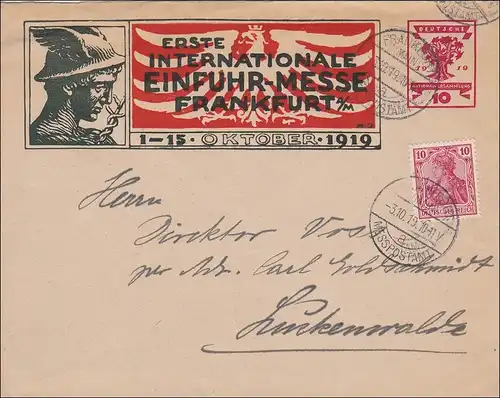 ERSTE
INTERNATIONALE
EINFUHR-MESSE
FRANKFURT a/M
1-15·OKTOBER·1919
DEUTSCHE
19 19
NATIONALVERSAMMLUNG
10
FRANKFURT
MESSPOSTAMT
10 10
DEUTSCHES REICH
-3.10.19.10-11V
a
MESSPOSTAMT
Herrn
Direktor Vost
per Adr. Carl Goldschmidt
Luckenwalde